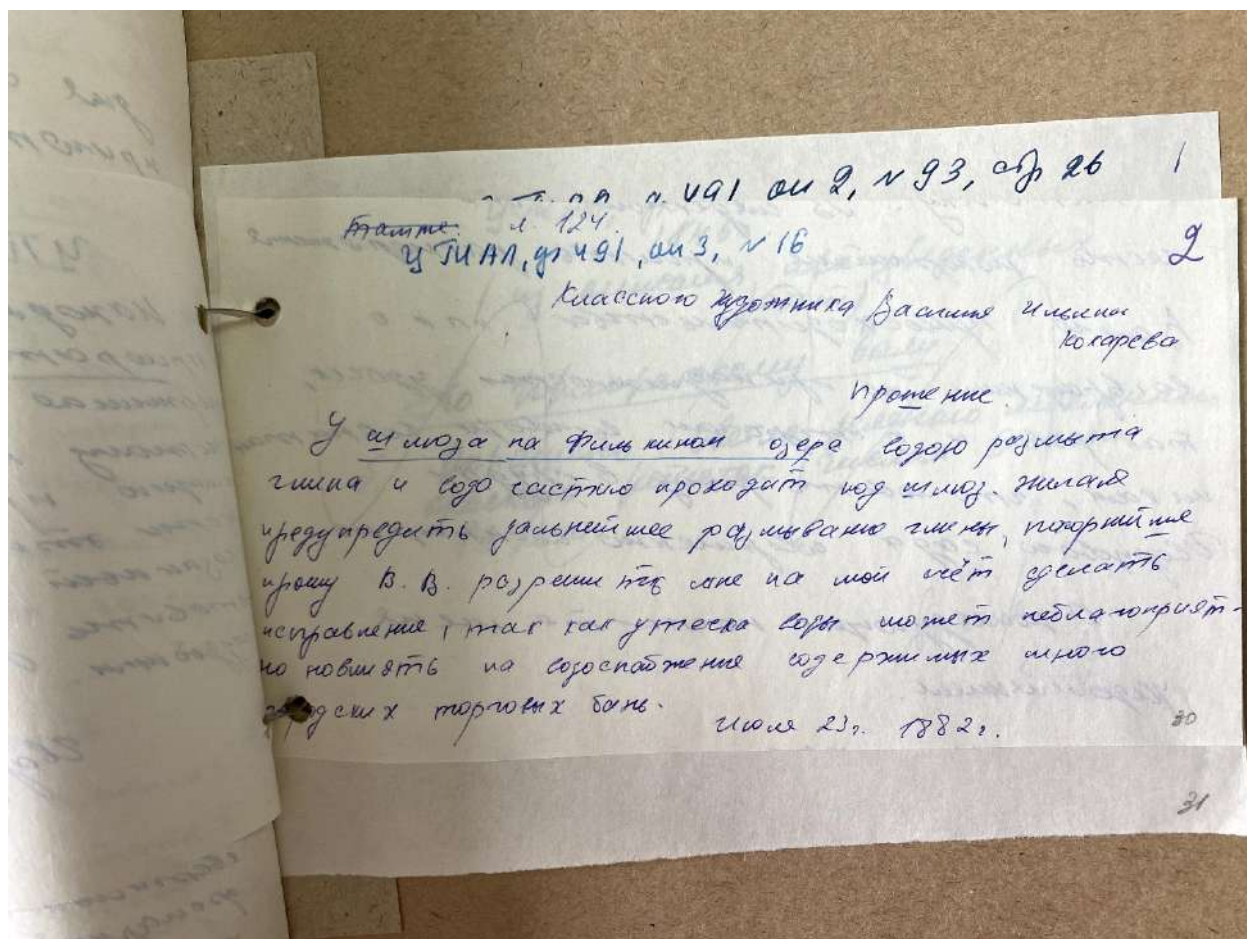 491 оп 2, № 93, стр 26 1
Там же. л. 124.
ЦГИАЛ, ф 491, оп 3, № 16 2
Классного художника Василия Ильина
Кокарева
прошение.
У шлюза на Филькином озера водою размыта
глина и водо частию проходит под шлюз. желая
предупредить дальнейшее размыванию глины, покорнейше
прошу В. В. разрешить мне на мой счёт сделать
исправление, так как утеска воды может неблагоприят-
но повлиять на водоснабжение содержимых много
городских торговых бань.
Июля 23г. 1882г.
30
31